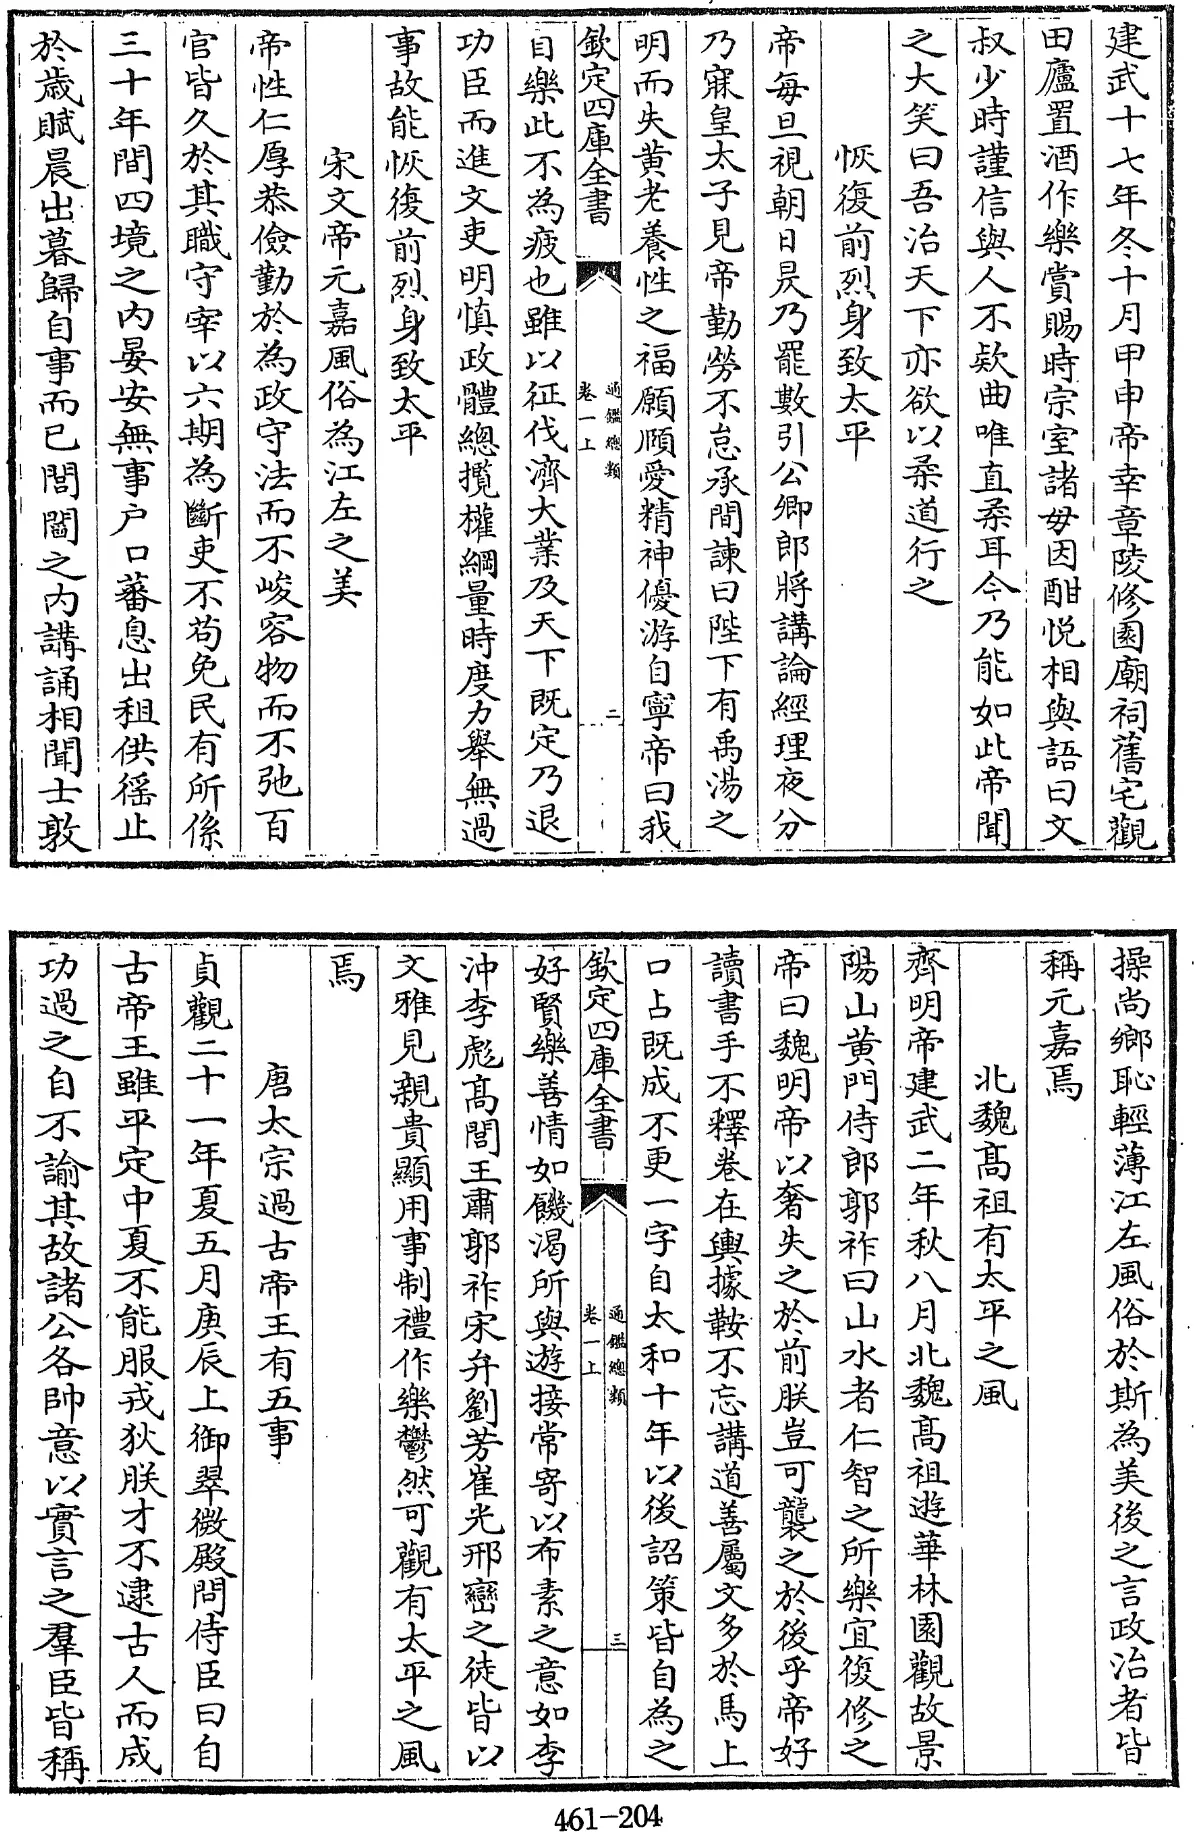 建武十七年冬十月甲申帝幸章陵修園廟祠舊宅觀
田廬置酒作樂賞賜時宗室諸母因酣悅相與語曰文
叔少時謹信與人不欵曲唯直柔耳今乃能如此帝聞
之大笑曰吾治天下亦欲以柔道行之
恢復前烈身致太平
帝每旦視朝日昃乃罷數引公卿郎將講論經理夜分
乃寐皇太子見帝勤勞不怠承間諫曰陛下有禹湯之
明而失黃老養性之福願頤愛精神優游自寧帝曰我
欽定四庫全書
通鑑總類
卷一上
二
自樂此不為疲也雖以征伐濟大業及天下既定乃退
功臣而進文吏明慎政體總攬權綱量時度力舉無過
事故能恢復前烈身致太平
宋文帝元嘉風俗為江左之美
帝性仁厚恭儉勤於為政守法而不峻容物而不弛百
官皆久於其職守宰以六期為斷吏不茍免民有所係
三十年間四境之內晏安無事户口蕃息出租供徭止
於歲賦晨出暮歸自事而已閭閻之內講誦相聞士敦
操尚鄉恥輕薄江左風俗於斯為美後之言政治者皆
稱元嘉焉
北魏髙祖有太平之風
齊明帝建武二年秋八月北魏髙祖遊華林園觀故景
陽山黃門侍郎郭祚曰山水者仁智之所樂宜復修之
帝曰魏明帝以奢失之於前朕豈可襲之於後乎帝好
讀書手不釋卷在輿據鞍不忘講道善屬文多於馬上
口占既成不更一字自太和十年以後詔策皆自為之
欽定四庫全書
通鑑總類
卷一上
三
好賢樂善情如饑渴所與遊接常寄以布素之意如李
沖李彪髙閭王肅郭祚宋弁劉芳崔光邢巒之徒皆以
文雅見親貴顯用事制禮作樂鬱然可觀有太平之風
焉
唐太宗過古帝王有五事
貞觀二十一年夏五月庚辰上御翠微殿問侍臣曰自
古帝王雖平定中夏不能服戎狄朕才不逮古人而成
功過之自不諭其故諸公各帥意以實言之羣臣皆稱
461-204